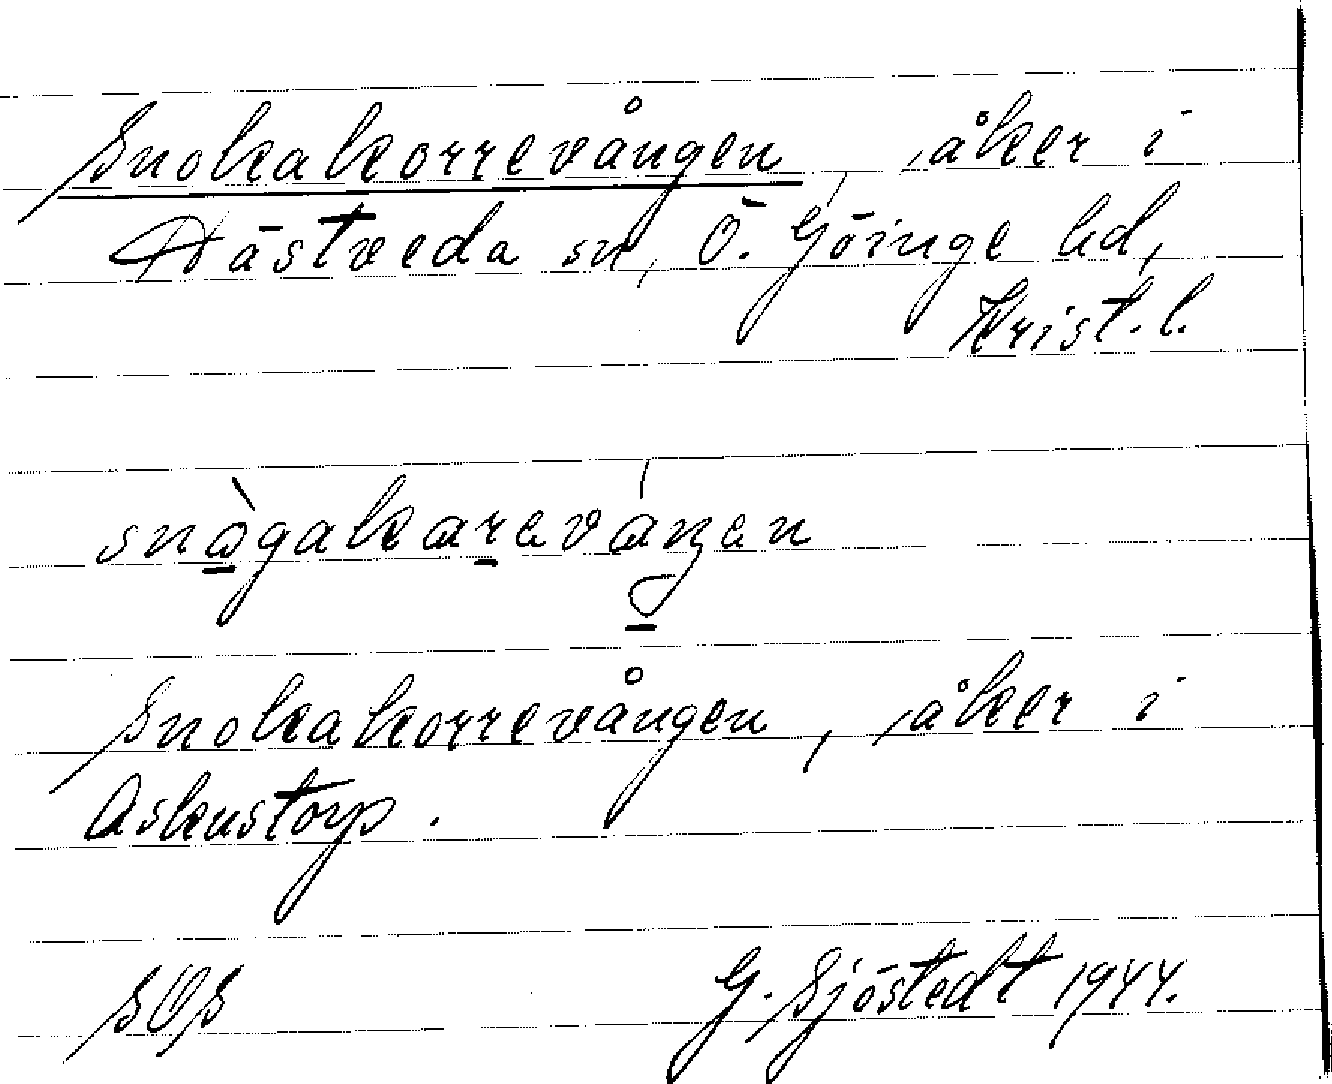 Snokakorrevången, åker i
Hästveda sn, Ö. Göinge hd,
Krist. l.
Snokakorrevången, åker i
Askustorp.
SOS G. Sjöstedt 1944.